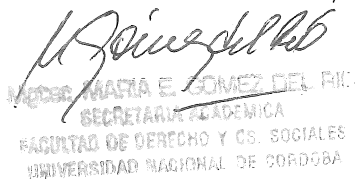 M Gómez del Río
MARIA E. GOMEZ DEL RIO
SECRETARIA ACADEMICA
FACULTAD DE DERECHO Y CS. SOCIALES
UNIVERSIDAD NACIONAL DE CORDOBA